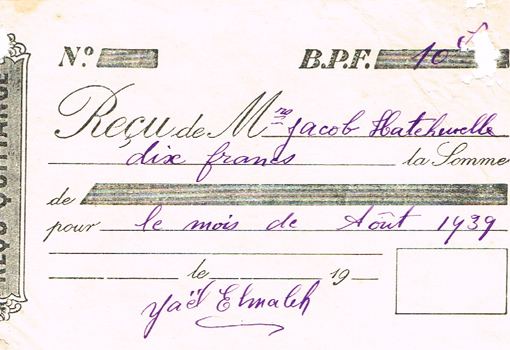 N.º B.P.F. 10 f
Reçu de M Jacob Hatchuelle
dix francs la Somme
de
pour le mois de Août 1939
le 19
Yaël Elmaleh
REÇU QUITTANCE